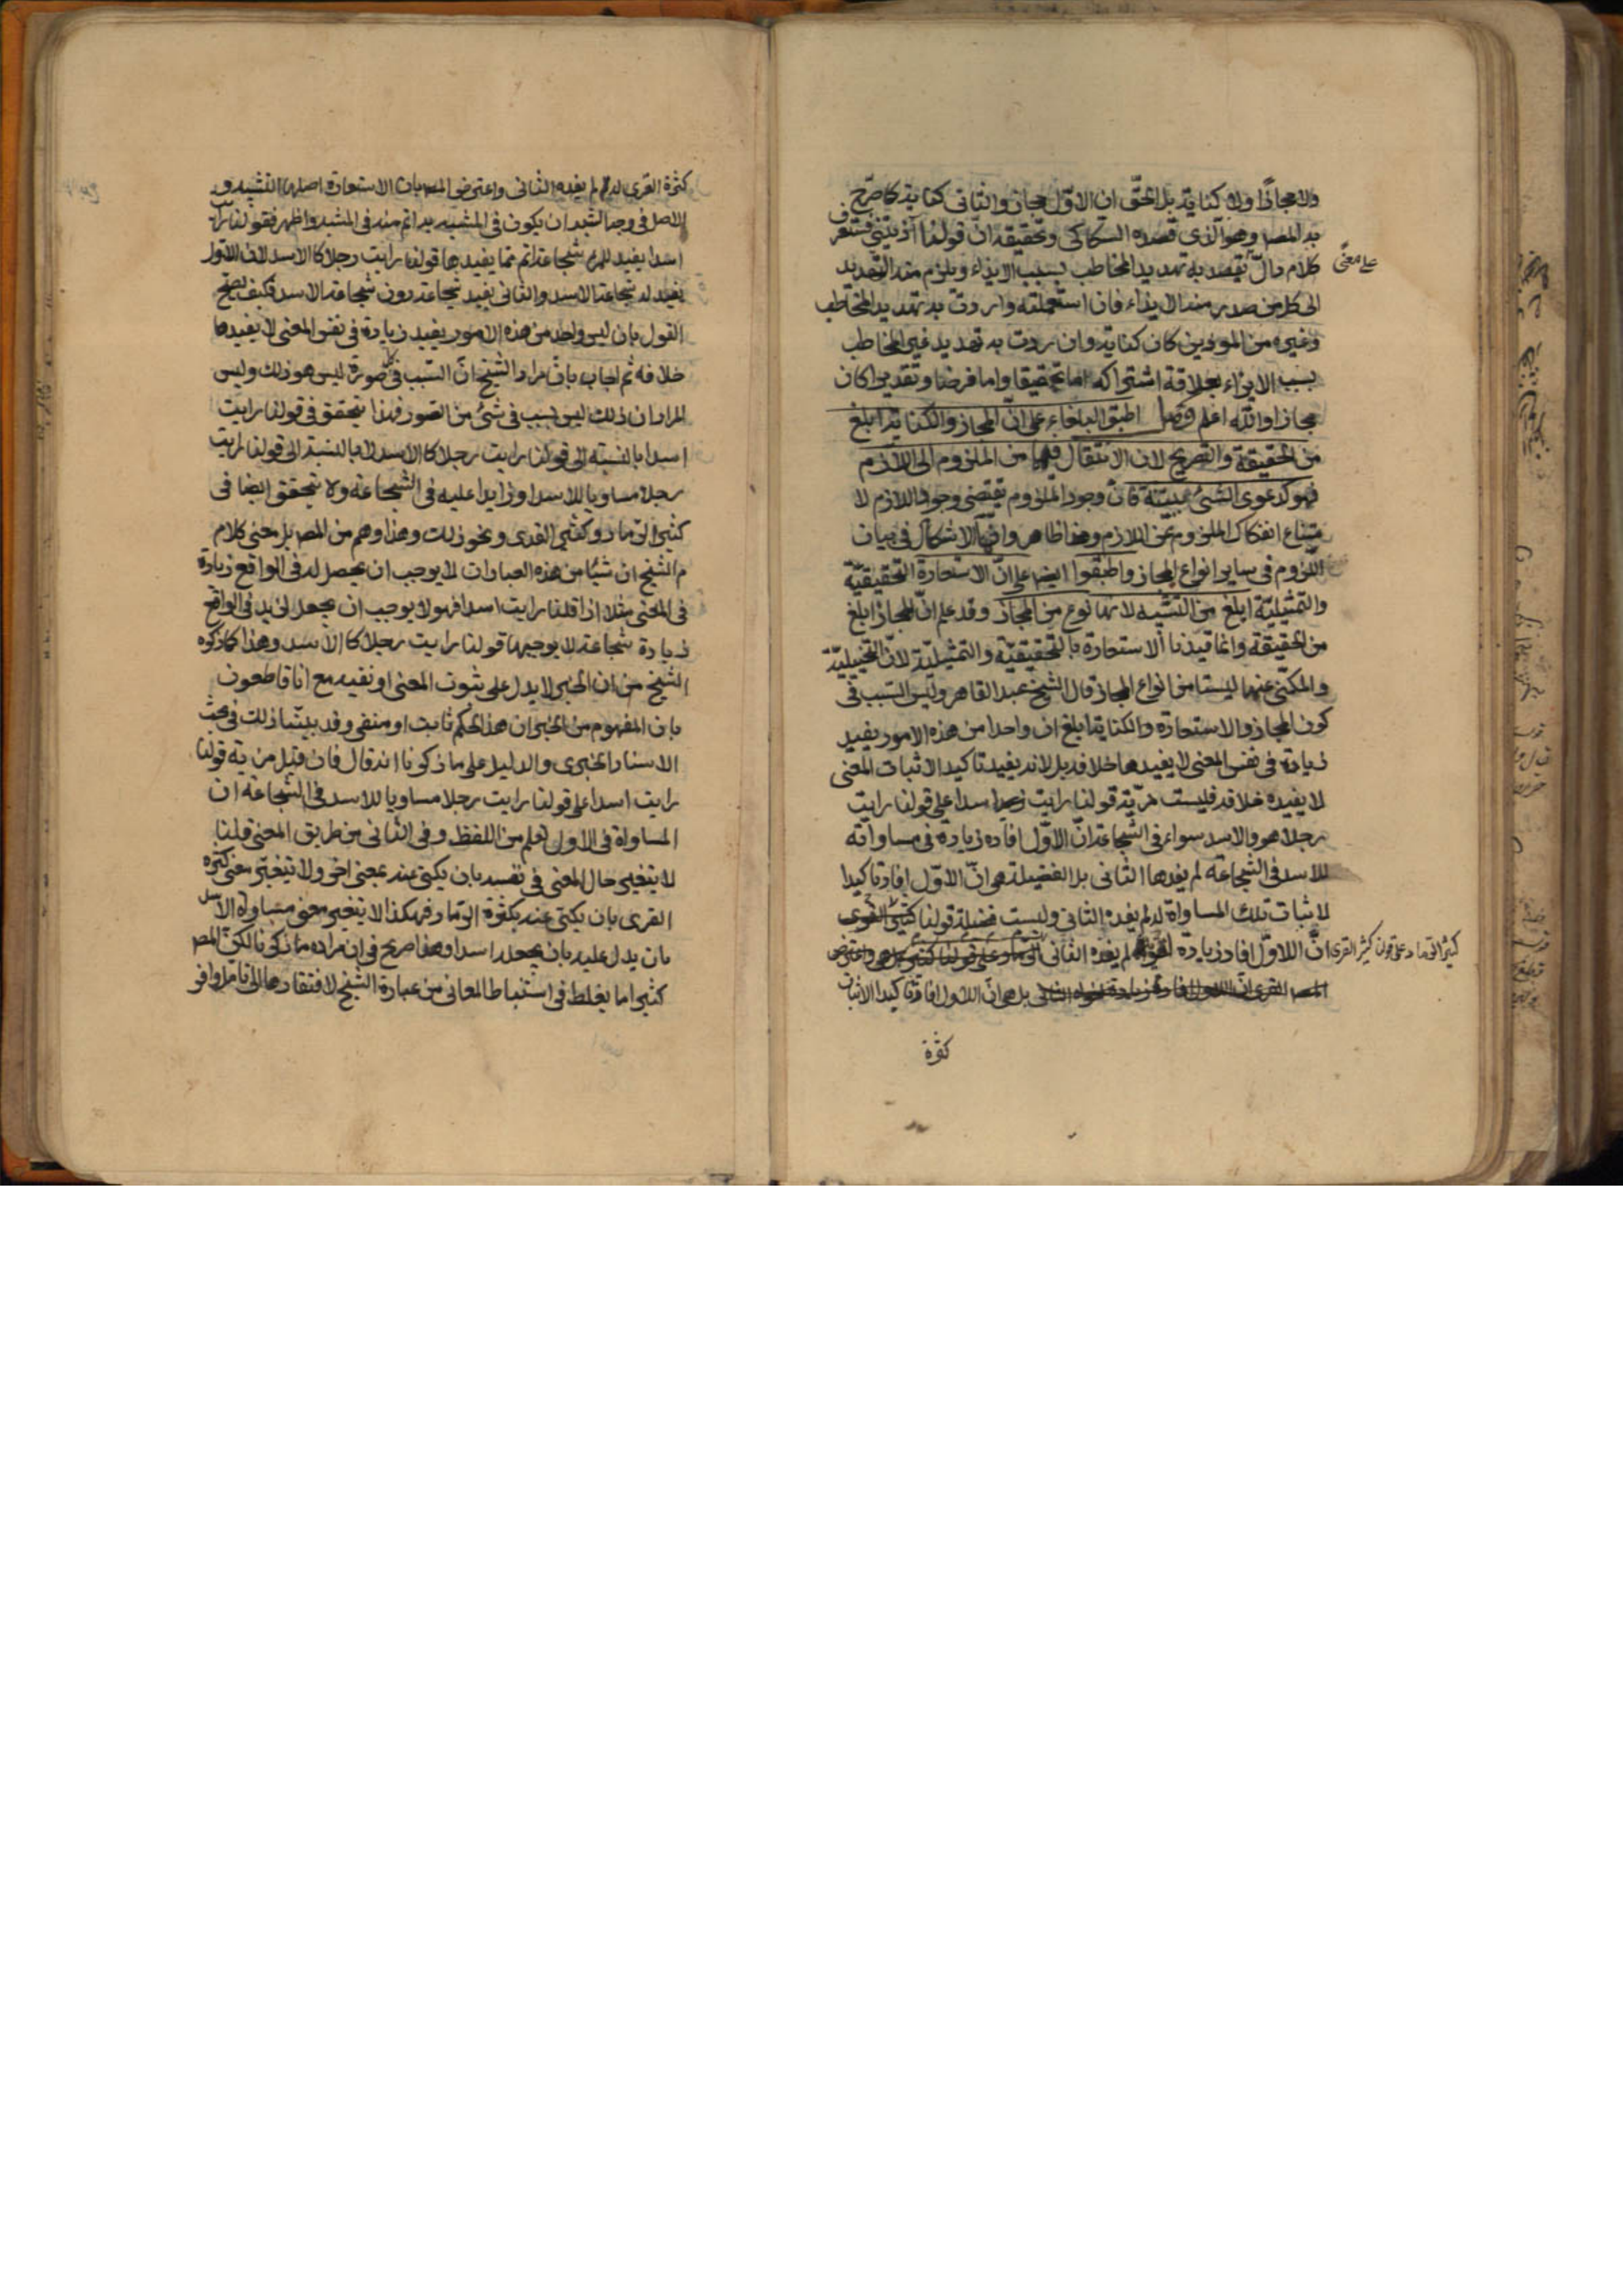 ولا مجازا ولا كناية بل الحق ان الاول مجاز والثاني كناية كما صرح
به المصـ وهو الذي قصده السكاكي وتحقيقه ان قولنا آذيتني فستعرف
كلام دال يقصد به تهديد المخاطب بسبب الايذاء ويلزم منه التهديد
على معنى
الى كل من صدر منه الايذاء فان استعملته واردت به تهديد المخاطب
وغيره من الموذين كان كناية وان اردت به تهديد غير المخاطب
بسبب الايذاء بعلاقة اشتراكه اما تحقيقا واما فرضا وتقديرا كان
مجازا والله اعلم فصل اطبق البلغاء على ان المجاز والكناية ابلغ
من الحقيقة والتصريح لان الانتقال فيهما من الملزوم الى اللازم
فهو كدعوى الشئ ببينة فان وجود الملزوم يقتضي وجود اللازم لا
متناع انفكاك الملزوم عن اللازم وهذا ظاهر وانما الاشكال في بيان
اللزوم في ساير انواع المجاز واطبقوا ايضا على ان الاستعارة التحقيقية
والتمثيلية ابلغ من التشبيه لانها نوع من المجاز وقد علم ان المجاز ابلغ
من الحقيقة وانما قيدنا الاستعارة بالتحقيقية والتمثيلية لان التخييلية
والمكني عنها ليستا من انواع المجاز قال الشيخ عبد القاهر وليس السبب في
كون المجاز والاستعارة والكناية ابلغ ان واحدا من هذه الامور يفيد
زيادة في نفس المعنى لا يفيدها خلافه بل لانه يفيد تاكيد الاثبات المعنى
لا يفيده خلافه فليست مزية قولنا رايت اسدا على قولنا رايت
رجلا هو والاسد سواء في الشجاعة ان الاول افاد زيادة في مساواته
للاسد في الشجاعة لم يفدها الثاني بل الفضيلة هي ان الاول افاد تاكيدا
لاثبات تلك المساواة له لم يفده الثاني وليست فضيلة قولنا
كثير الرماد على قولنا كثير القرى ان الاول افاد زيادة لم يفده الثاني
بل هي ان الاول افاد تاكيدا لاثبات
كثرة
كثرة القرى له لم يفده الثاني واعترض المصـ بان الاستعارة اصلها التشبيه و
الاصل في وجه الشبه ان يكون في المشبه به اتم منه في المشبه واظهر فقولنا رايت
اسدا يفيد للمرء شجاعة اتم مما يفيدها قولنا رايت رجلا كالاسد لان الاول
يفيد له شجاعة الاسد والثاني يفيد شجاعة دون شجاعة الاسد فكيف يصح
القول بان ليس واحد من هذه الامور يفيد زيادة في نفس المعنى لا يفيدها
خلافه ثم اجاب بان مراد الشيخ ان السبب في كل صورة ليس هو ذلك وليس
المراد ان ذلك ليس بسبب في شئ من الصور فهذا يتحقق في قولنا رايت
اسدا بالنسبة الى قولنا رايت رجلا كالاسد لا بالنسبة الى قولنا رايت
رجلا مساويا للاسد او زايدا عليه في الشجاعة ولا يتحقق ايضا في
كثير الرماد وكثير القرى ونحو ذلك وهذا وهم من المصـ بل معنى كلام
الشيخ ان شيئا من هذه العبارات لا يوجب ان يحصل له في الواقع زيادة
في المعنى مثلا اذا قلنا رايت اسدا فهو لا يوجب ان يحصل لزيد في الواقع
زيادة شجاعة لا يوجبها قولنا رايت رجلا كالاسد وهذا كما ذكره
الشيخ من ان الخبر لا يدل على ثبوت المعنى او نفيه مع انا قاطعون
بان المفهوم من الخبر ان هذا الحكم ثابت او منفي وقد بينا ذلك في بحث
الاسناد الخبري والدليل على ما ذكرنا انه قال فان قيل مزية قولنا
رايت اسدا على قولنا رايت رجلا مساويا للاسد في الشجاعة ان
المساواة في الاول تعلم من اللفظ وفي الثاني من طريق المعنى قلنا
لا يتغير حال المعنى في نفسه بان يكنى عنه بمعنى اخر ولا يتغير معنى كثرة
القرى بان يكنى عنه بكثرة الرماد فهكذا لا يتغير معنى مساواة الاسد
بان يدل عليه بان يجعله اسدا وهذا صريح في ان مراده ما ذكرنا لكن المصـ
كثيرا ما يغلط في استنباط المعاني من عبارة الشيخ لافتقارها الى تامل وافر